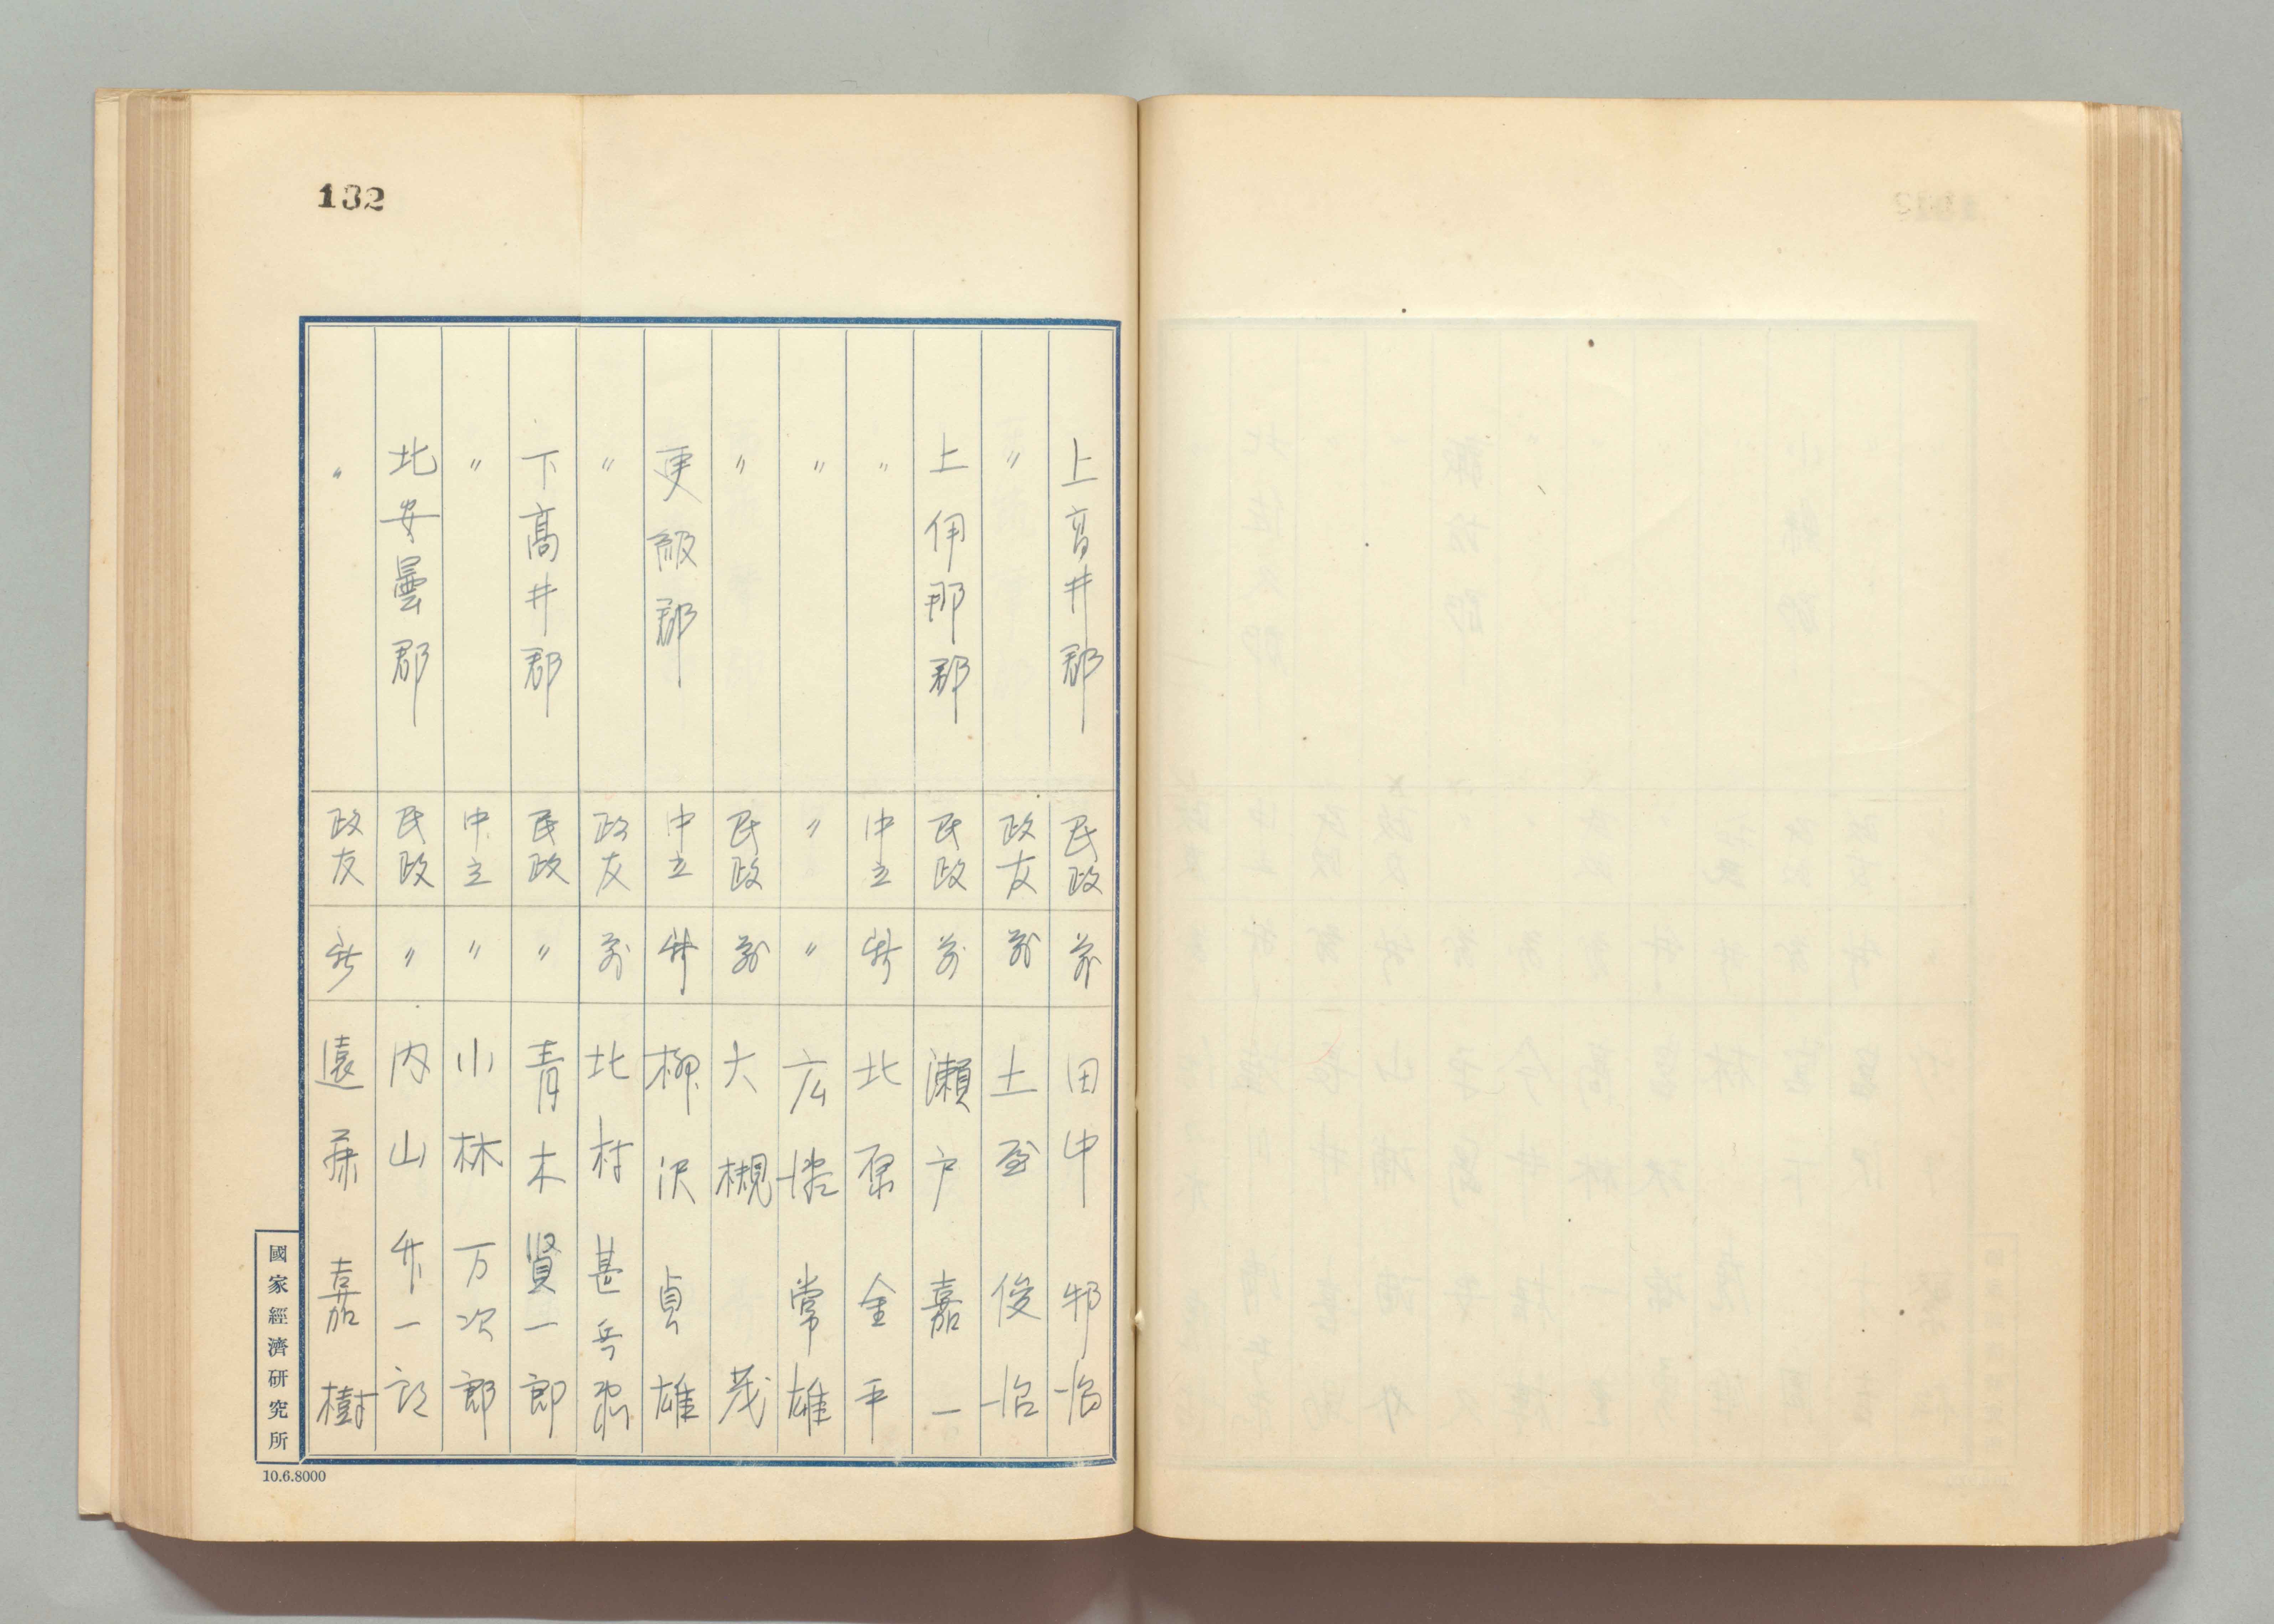 132
上高井郡 民政 前 田中邦治
〃 政友 前 土屋俊治
上伊那郡 民政 前 瀬戸嘉一
〃 中立 新 北原金平
〃 〃 〃 広澤常雄
〃 民政 前 大槻茂
更級郡 中立 新 柳沢貞雄
〃 政友 前 北村甚兵衛
下高井郡 民政 〃 青木賢一郎
〃 中立 〃 小林万次郎
北安曇郡 民政 〃 内山弁一郎
〃 政友 新 遠藤嘉樹
國家經濟研究所
10.6.8000